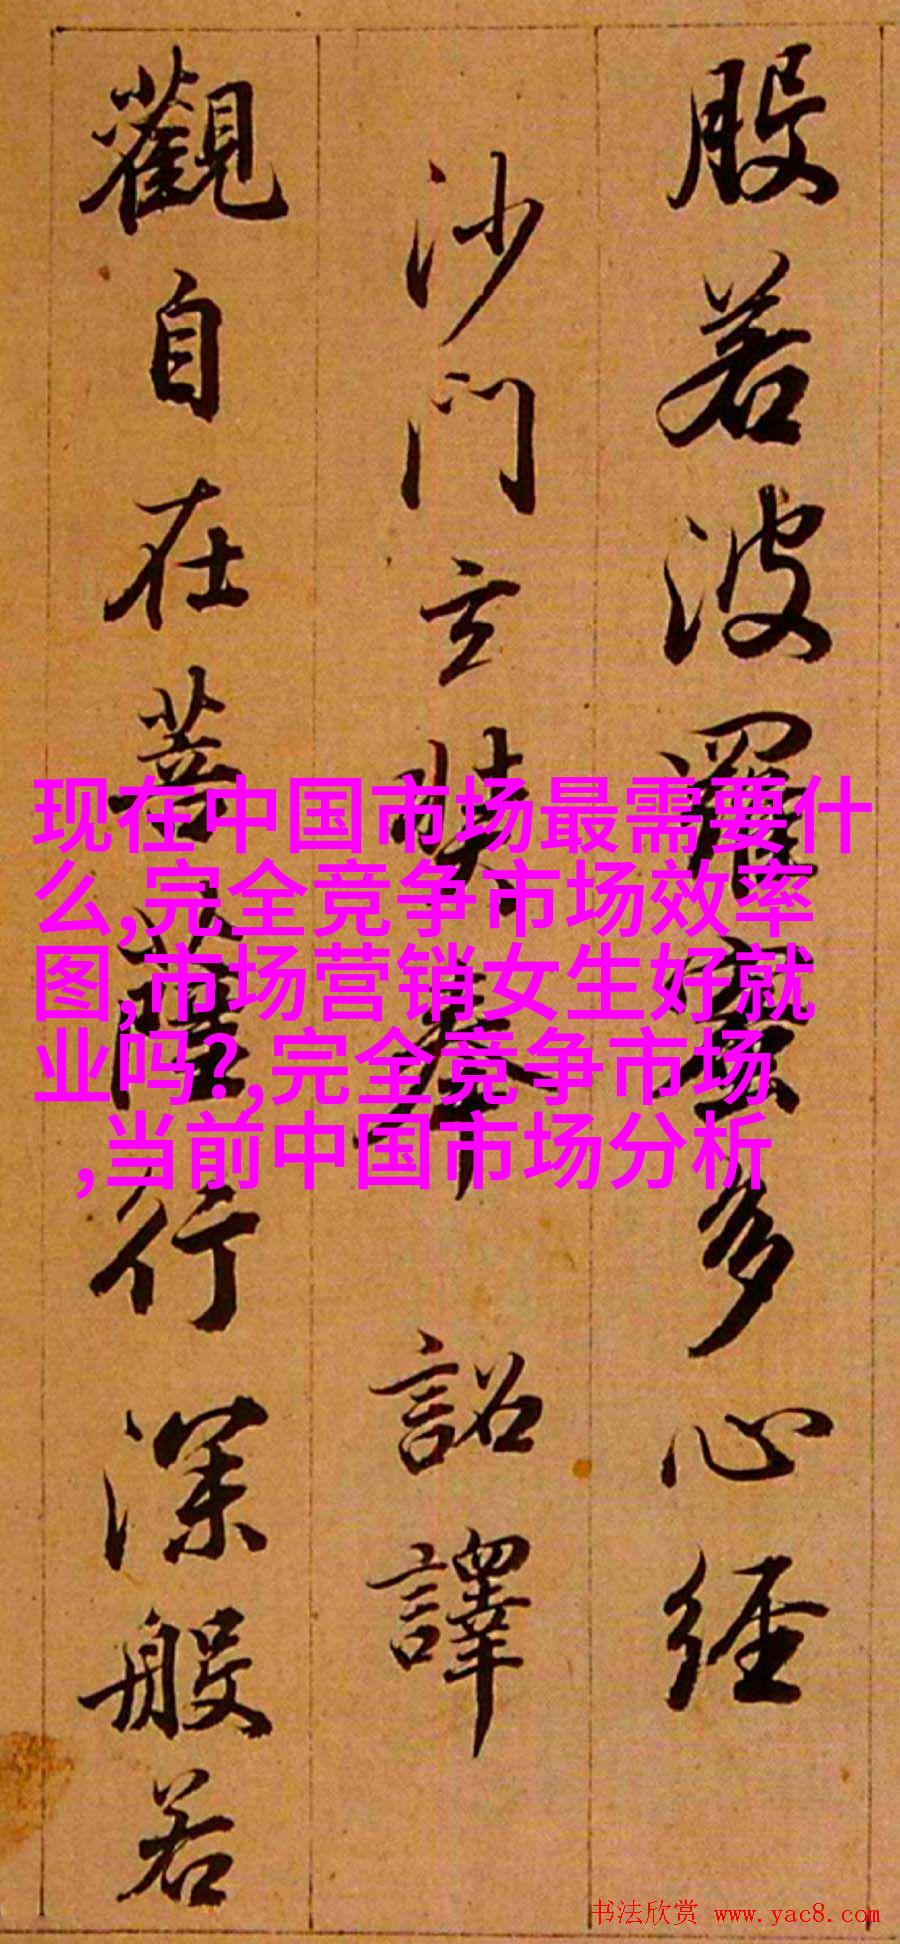 般若波羅蜜多心經
沙門玄奘奉 詔譯
觀自在菩薩行深般若
现在中国市场最需要什
么,完全竞争市场效率
图,市场营销女生好就
业吗?,完全竞争市场
,当前中国市场分析
书法欣赏 www.yac8.com